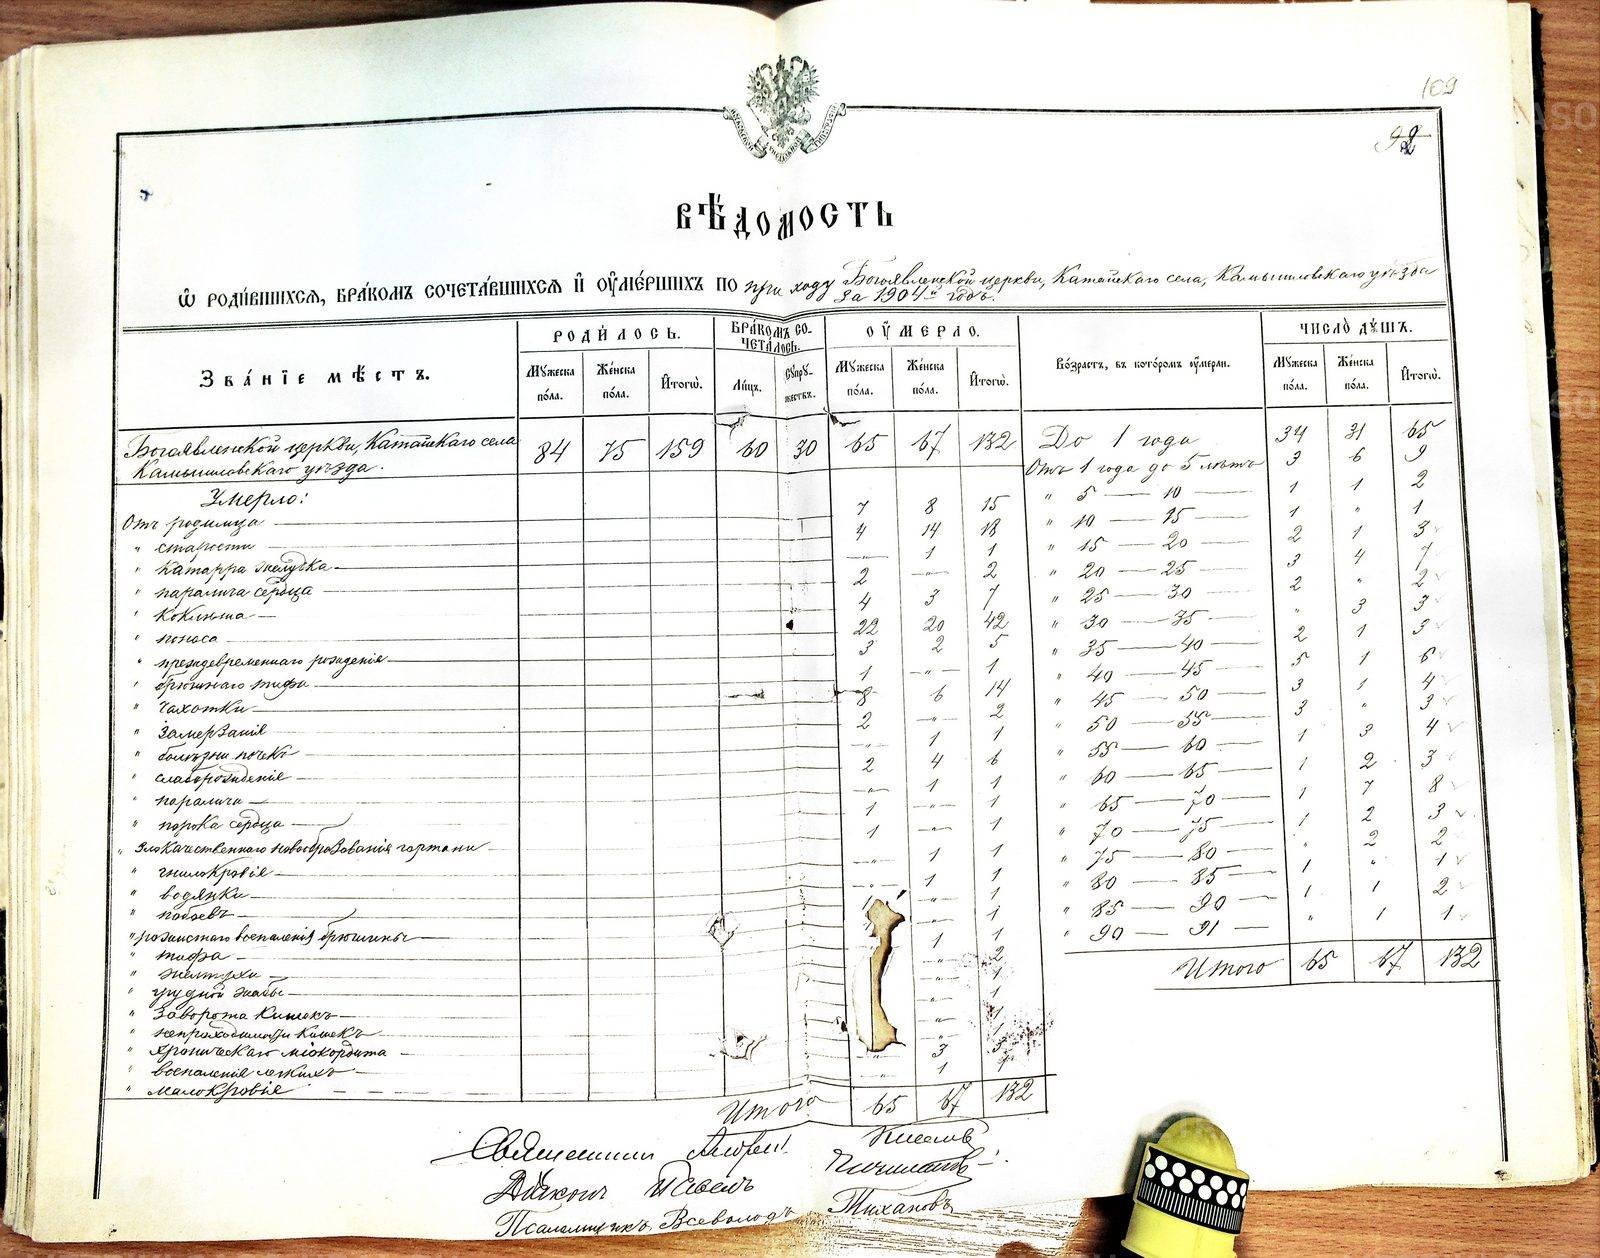 109
92
ВѢДОМОСТЬ
Ѿ РОДИ́ВШИХСЯ, БРА́КОМЪ СОЧЕТА́ВШИХСЯ И҆ ОУ҆МЕ́РШИХЪ ПО приходу Богоявленской церкви, Катайскаго села, Камышловскаго уѣзда
за 1904й годъ.
ЗВА́НІЕ МѢ́СТЪ.
РОДИ́ЛОСЬ.
БРА́КОМЪ СО-
ЧЕТА́ЛОСЬ.
ОУ҆МЕРЛО.
Во́зрастъ, въ кото́ромъ оу҆мерли.
ЧИСЛО̀ ДУ́ШЪ.
Мужеска по́ла.
Же́нска по́ла.
И҆тогѡ̀.
Ли́цъ.
Супру-
жествъ.
Мужеска по́ла.
Же́нска по́ла.
И҆тогѡ̀.
Мужеска по́ла.
Же́нска по́ла.
И҆тогѡ̀.
Богоявленской церкви, Катайскаго села
Камышловскаго уѣзда. 84 75 159 60 30 65 67 132
Умерло:
Отъ родимца 7 8 15
" старости 4 14 18
" катарра желудка -"- 1 1
" паралича сердца 2 -"- 2
" коклюша 4 3 7
" поноса 22 20 42
" преждевременнаго рожденія 3 2 5
" брюшнаго тифа 1 -"- 1
" чахотки 8 6 14
" замерзанія 2 -"- 2
" болѣзни почекъ -"- 1 1
" слаборожденія 2 4 6
" паралича -"- 1 1
" порока сердца 1 -"- 1
" злокачественнаго новообразованія гортани 1 -"- 1
" гнилокровія -"- 1 1
" водянки -"- 1 1
" побоевъ 1 -"- 1
" рожистаго воспаленія брюшины -"- 1
" тифа 1 1
" желтухи -"- 2
" грудной жабы -"- 1
" заворота кишекъ -"- 1
" непроходимости кишекъ -"- 1
" хроническаго міокардита -"- 1
" воспаленія легкихъ " 3 3
" малокровія " 1 1
Итого 65 67 132
До 1 года 34 31 65
Отъ 1 года до 5 лѣтъ 3 6 9
" 5 — 10 1 1 2
" 10 — 15 1 " 1
" 15 — 20 2 1 3
" 20 — 25 3 4 7
" 25 — 30 2 " 2
" 30 — 35 " 3 3
" 35 — 40 2 1 3
" 40 — 45 5 1 6
" 45 — 50 3 1 4
" 50 — 55 3 " 3
" 55 — 60 1 3 4
" 60 — 65 1 2 3
" 65 — 70 1 7 8
" 70 — 75 1 2 3
" 75 — 80 " 2 2
" 80 — 85 1 " 1
" 85 — 90 1 1 2
" 90 — 91 " 1 1
Итого 65 67 132
Священникъ Андрей
Діаконъ Павелъ
Псаломщикъ Всеволодъ Тихановъ